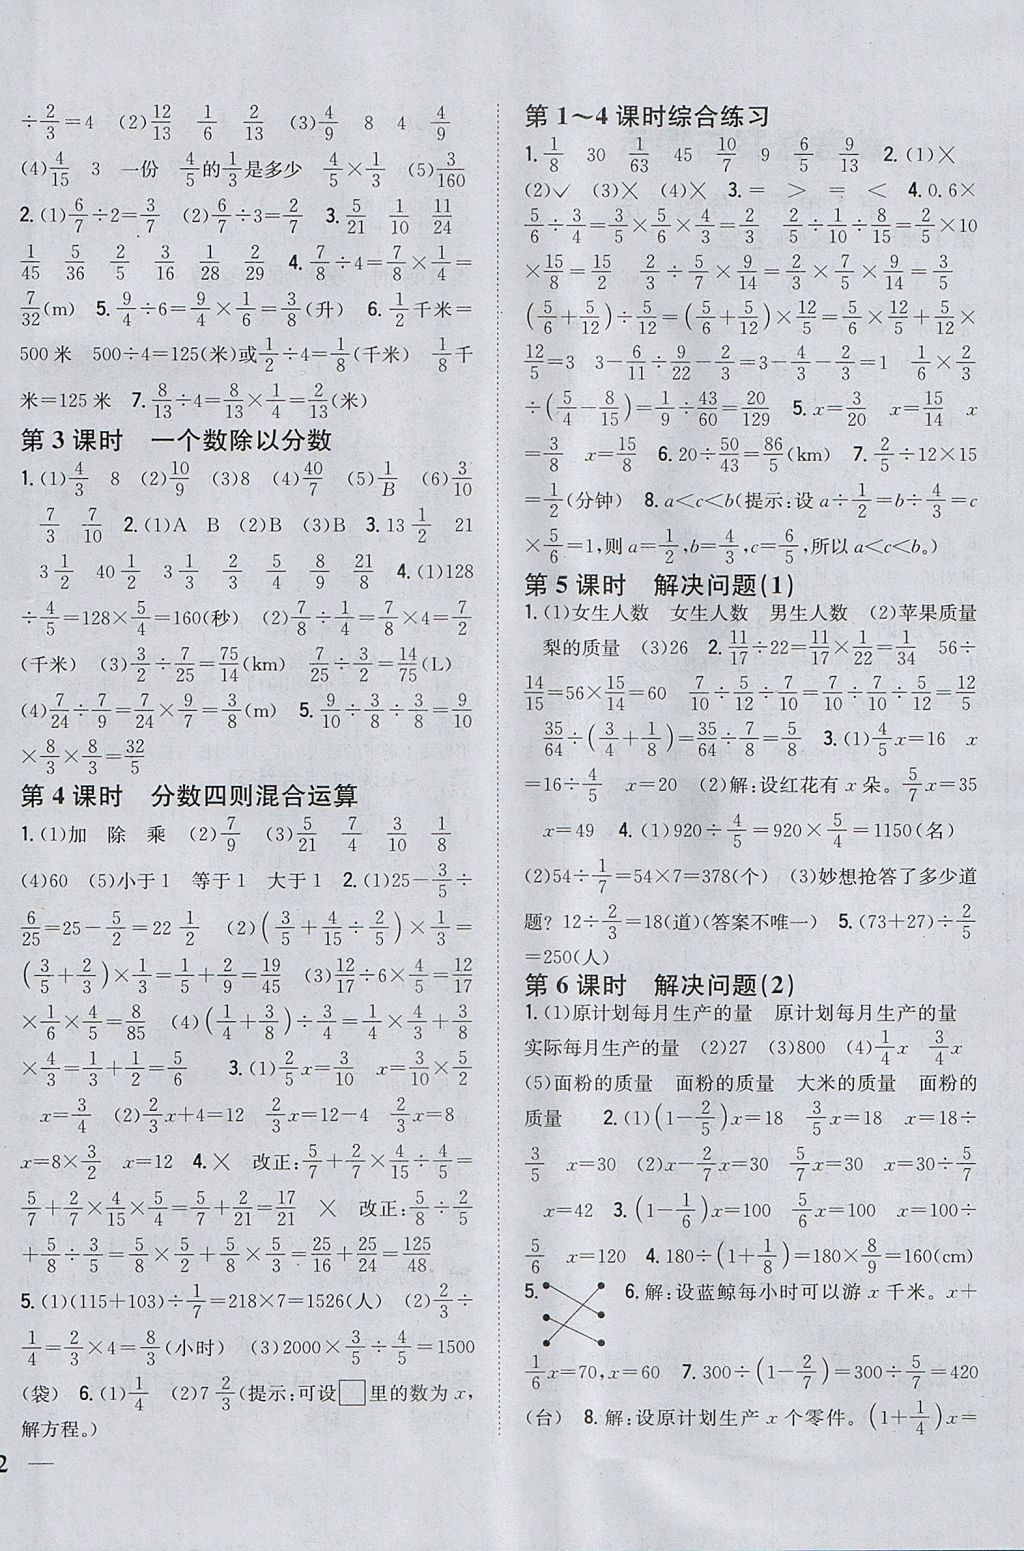 ÷2/3=4 (2)12/13 1/6 2/13 (3)4/9 8 4 4/9
(4)4/15 3 一份 4/5的1/3是多少 4/5×1/3 (5)3/160
2.(1)6/7÷2=3/7 (2)6/7÷3=2/7 3.5/21 1/10 11/24
1/45 5/36 2/5 3/16 1/28 2/29 4.7/8÷4=7/8×1/4=
7/32(m) 5.9/4÷6=9/4×1/6=3/8(升) 6.1/2千米=
500米 500÷4=125(米)或1/2÷4=1/8(千米) 1/8千
米=125米 7.8/13÷4=8/13×1/4=2/13(米)
第3课时 一个数除以分数
1.(1)4/3 8 (2)10/9 (3)8 (4)40/7 (5)1/B (6)3/10
7/3 7/10 2.(1)A B (2)B (3)B 3.13 1/2 21
3 1/2 40 1/2 3/2 9/8 9/28 21/8 4.(1)128
÷4/5=128×5/4=160(秒) (2)7/8÷1/4=7/8×4=7/2
(千米) (3)3/2÷7/25=75/14(km) 7/25÷3/2=14/75(L)
(4)7/24÷7/9=7/24×9/7=3/8(m) 5.9/10÷3/8÷3/8=9/10
×8/3×8/3=32/5
第4课时 分数四则混合运算
1.(1)加 除 乘 (2)7/9 (3)5/21 7/4 3/10 1/8
(4)60 (5)小于1 等于1 大于1 2.(1)25-3/5÷
6/25=25-5/2=22 1/2 (2)(3/5+4/15÷2/5)×1/3=
(3/5+2/3)×1/3=1/5+2/9=19/45 (3)12/17÷6×4/5=12/17
×1/6×4/5=8/85 (4)(1/4+3/8)÷3/4=1/4×4/3+3/8
×4/3=1/3+1/2=5/6 3.(1)2/5x=3/10 x=3/10÷2/5
x=3/4 (2)2/3x+4=12 2/3x=12-4 2/3x=8
x=8×3/2 x=12 4.✕ 改正:5/7+2/7×4/15÷4/5=
5/7+2/7×4/15×5/4=5/7+2/21=17/21 ✕ 改正:5/8÷2/5
+5/8÷3/5=5/8×5/2+5/8×5/3=25/16+25/24=125/48
5.(1)(115+103)÷1/7=218×7=1526(人) (2)2/3÷
1/4=2/3×4=8/3(小时) (3)2000×3/5÷4/5=1500
(袋) 6.(1)1/4 (2)7 2/3(提示:可设□里的数为x,
解方程。)
2 —
第1~4课时综合练习
1.1/8 30 1/63 45 10/7 9 6/5 9/13 2.(1)✕
(2)✓ (3)✕ (4)✕ 3.= > = < 4.0.6×
5/6÷3/4=3/5×5/6×4/3=2/3 2/5÷1/10÷8/15=2/5×10
×15/8=15/2 2/3÷5/7×9/14=2/3×7/5×9/14=3/5
(5/6+5/12)÷5/12=(5/6+5/12)×12/5=5/6×12/5+5/12×
12/5=3 3-6/11÷9/22-2/3=3-4/3-2/3=1 1/6×2/3
÷(5/4-8/15)=1/9÷43/60=20/129 5.x=3/20 x=15/14 x
=3/8 x=15/8 6.20÷50/43=86/5(km) 7.2/5÷12×15
=1/2(分钟) 8.a<c<b(提示:设a÷1/2=b÷4/3=c
×5/6=1,则a=1/2,b=4/3,c=6/5,所以a<c<b。)
第5课时 解决问题(1)
1.(1)女生人数 女生人数 男生人数 (2)苹果质量
梨的质量 (3)26 2.11/17÷22=11/17×1/22=1/34 56÷
14/15=56×15/14=60 7/10÷5/12÷7/10=7/10÷7/10÷5/12=12/5
35/64÷(3/4+1/8)=35/64÷7/8=5/8 3.(1)4/5x=16 x
=16÷4/5 x=20 (2)解:设红花有x朵。5/7x=35
x=49 4.(1)920÷4/5=920×5/4=1150(名)
(2)54÷1/7=54×7=378(个) (3)妙想抢答了多少道
题? 12÷2/3=18(道)(答案不唯一) 5.(73+27)÷2/5
=250(人)
第6课时 解决问题(2)
1.(1)原计划每月生产的量 原计划每月生产的量
实际每月生产的量 (2)27 (3)800 (4)1/4x 3/4x
(5)面粉的质量 面粉的质量 大米的质量 面粉的
质量 2.(1)(1-2/5)x=18 3/5x=18 x=18÷
3/5 x=30 (2)x-2/7x=30 5/7x=30 x=30÷5/7
x=42 3.(1-1/6)x=100 5/6x=100 x=100÷
5/6 x=120 4.180÷(1+1/8)=180×8/9=160(cm)
5. 6.解:设蓝鲸每小时可以游x千米。x+
1/6x=70,x=60 7.300÷(1-2/7)=300÷5/7=420
(台) 8.解:设原计划生产x个零件。(1+1/4)x=